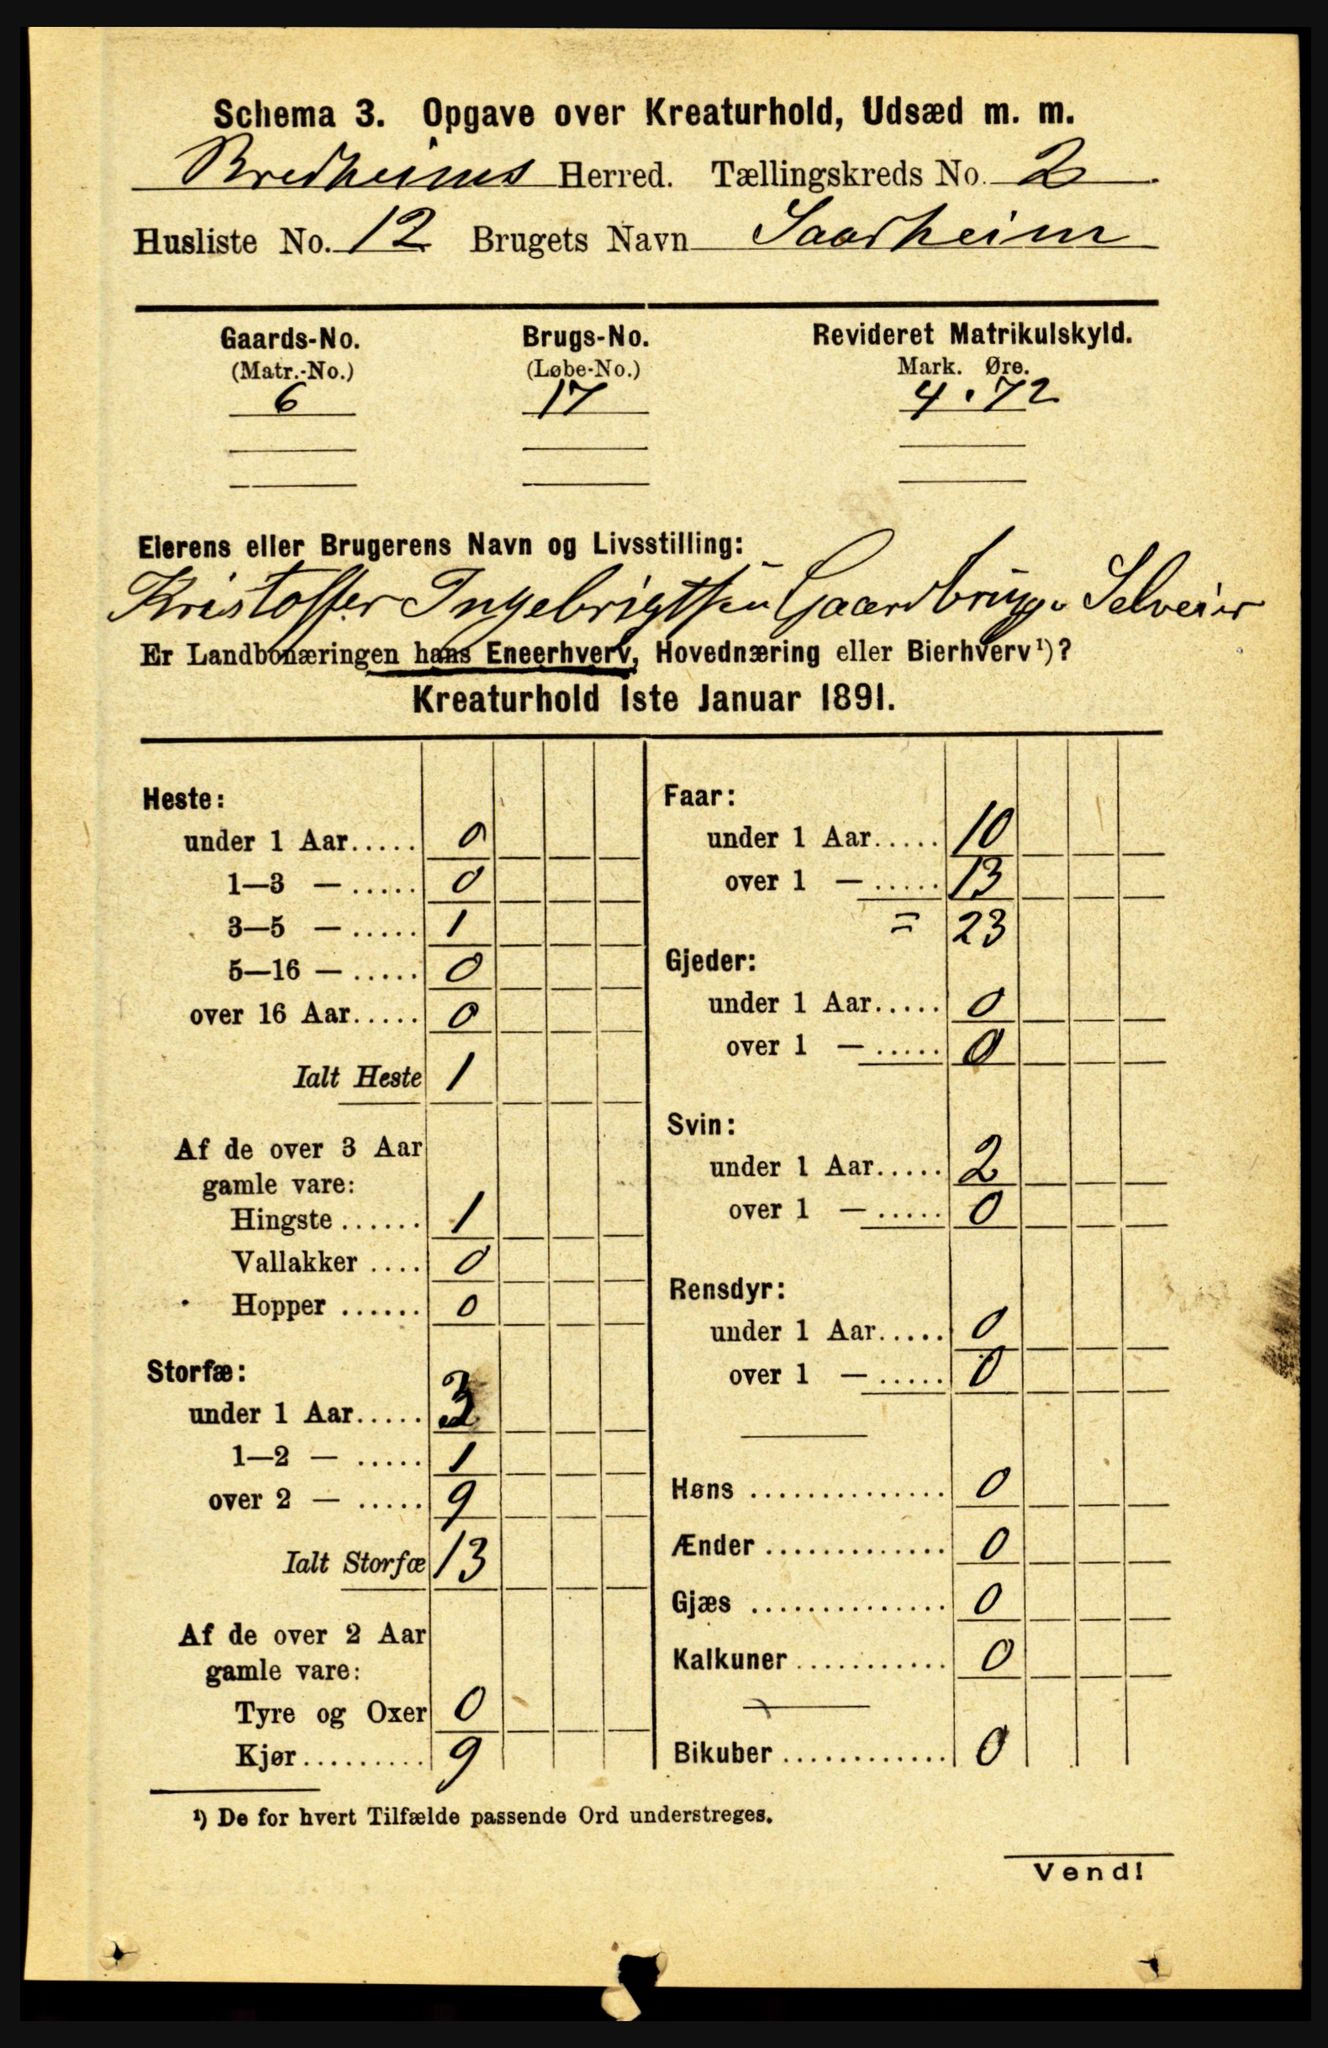 Schema 3. Opgave over Kreaturhold, Udsæd m. m.
Bredheims Herred. Tællingskreds No. 2
Husliste No. 12 Brugets Navn Saarheim
Gaards-No. Brugs-No. Revideret Matrikulskyld.
(Matr.-No.) (Løbe-No.) Mark. Øre.
6 17 4.72
Eierens eller Brugerens Navn og Livsstilling:
Kristoffer Ingebrigtsen Gaardbruger Selveier
Er Landbonæringen hans Eneerhverv, Hovednæring eller Bierhverv¹)?
Kreaturhold 1ste Januar 1891.
Heste:
under 1 Aar..... 0
1—3 — ..... 0
3—5 — ..... 1
5—16 — ..... 0
over 16 Aar..... 0
Ialt Heste 1
Af de over 3 Aar
gamle vare:
Hingste ...... 1
Vallakker .... 0
Hopper ...... 0
Storfæ:
under 1 Aar..... 3
1—2 — ..... 1
over 2 — ..... 9
Ialt Storfæ 13
Af de over 2 Aar
gamle vare:
Tyre og Oxer 0
Kjør.......... 9
Faar:
under 1 Aar..... 10
over 1 — ..... 13
= 23
Gjeder:
under 1 Aar..... 0
over 1 — ..... 0
Svin:
under 1 Aar..... 2
over 1 — ..... 0
Rensdyr:
under 1 Aar..... 0
over 1 — ..... 0
Høns ............... 0
Ænder .............. 0
Gjæs ............... 0
Kalkuner............ 0
Bikuber ............. 0
¹) De for hvert Tilfælde passende Ord understreges.
Vend!